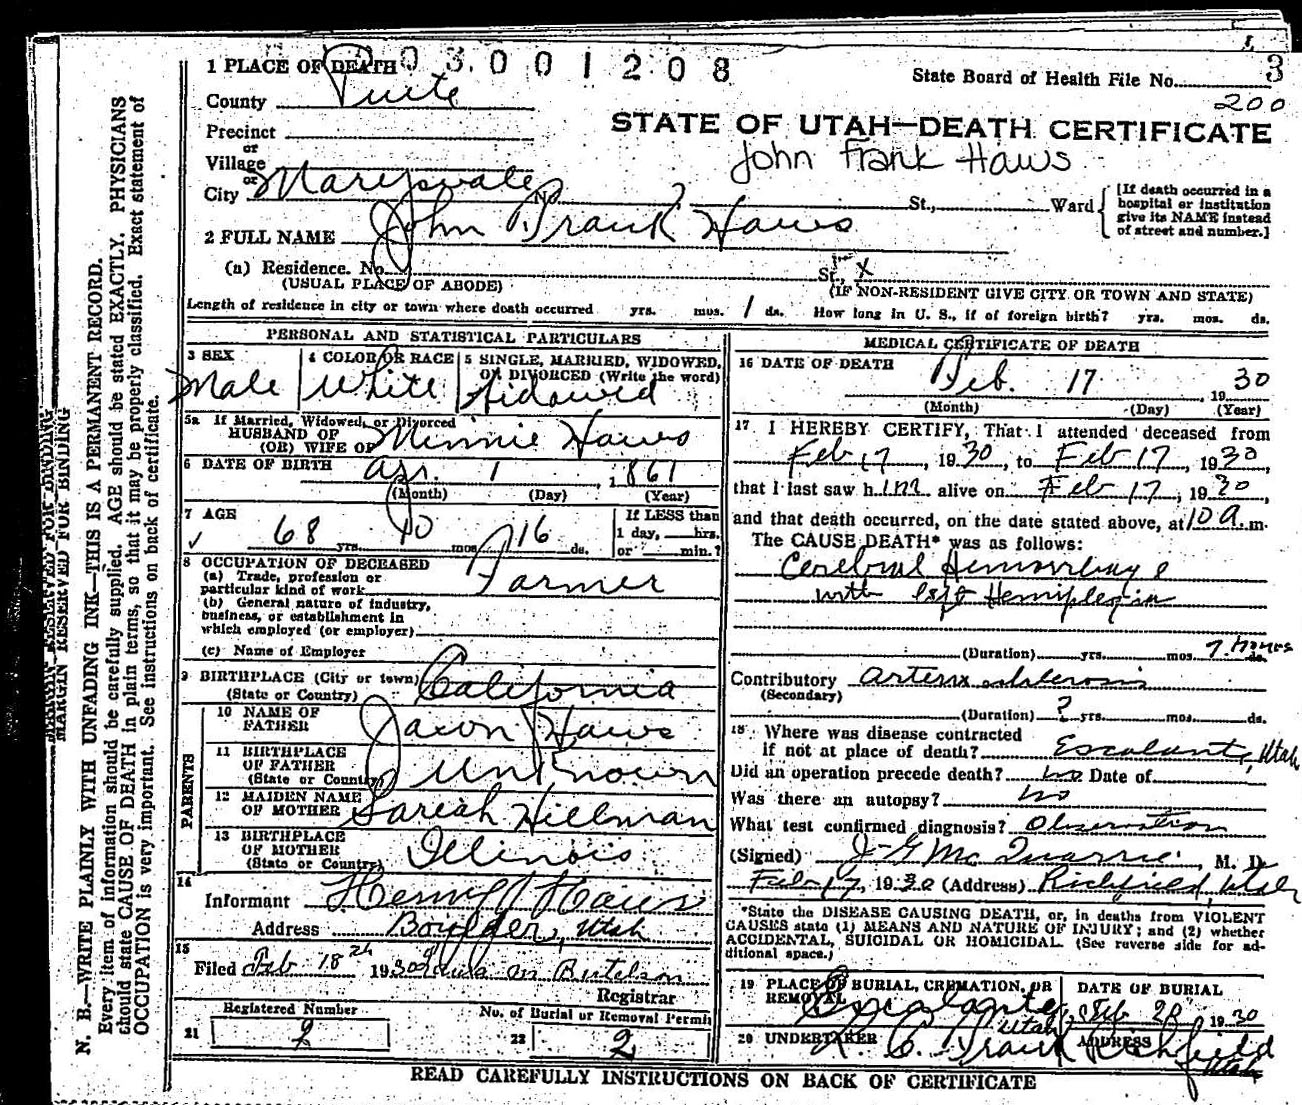 3
003001208
1 PLACE OF DEATH
State Board of Health File No. 3
200
County Piute
STATE OF UTAH—DEATH CERTIFICATE
Precinct
John Frank Haws
or
Village
or
City Marysvale No. St., Ward
[If death occurred in a hospital or institution give its NAME instead of street and number.]
2 FULL NAME John Frank Haws
(a) Residence. No. St., x
(USUAL PLACE OF ABODE) (IF NON-RESIDENT GIVE CITY OR TOWN AND STATE)
Length of residence in city or town where death occurred yrs. mos. 1 ds. How long in U. S., if of foreign birth? yrs. mos. ds.
PERSONAL AND STATISTICAL PARTICULARS
3 SEX Male
4 COLOR OR RACE White
5 SINGLE, MARRIED, WIDOWED, OR DIVORCED (Write the word) Widowed
5a If Married, Widowed, or Divorced
HUSBAND OF
(OR) WIFE OF Minnie Haws
6 DATE OF BIRTH Apr. 1 1861
(Month) (Day) (Year)
7 AGE 68 yrs. 10 mos. 16 ds.
If LESS than 1 day, hrs. or min.?
8 OCCUPATION OF DECEASED
(a) Trade, profession or particular kind of work Farmer
(b) General nature of industry, business, or establishment in which employed (or employer)
(c) Name of Employer
9 BIRTHPLACE (City or town)
(State or Country) California
PARENTS
10 NAME OF FATHER Jason Haws
11 BIRTHPLACE OF FATHER (State or Country) Unknown
12 MAIDEN NAME OF MOTHER Sariah Hillman
13 BIRTHPLACE OF MOTHER (State or Country) Illinois
14
Informant Henry J Haws
Address Boulder, Utah
15
Filed Feb 18 24 1930
Registrar
Registered Number
21 2
No. of Burial or Removal Permit
22 2
MEDICAL CERTIFICATE OF DEATH
16 DATE OF DEATH Feb. 17 1930
(Month) (Day) (Year)
17 I HEREBY CERTIFY, That I attended deceased from
Feb 17, 1930, to Feb 17, 1930
that I last saw him alive on Feb 17, 1930,
and that death occurred, on the date stated above, at 10 a. m.
The CAUSE DEATH* was as follows:
Cerebral Hemorrhage
with left Hemiplegia
(Duration) yrs. mos. 7 hours ds.
Contributory Arterio sclerosis
(Secondary)
(Duration) ? yrs. mos. ds.
18 Where was disease contracted
if not at place of death? Escalante, Utah
Did an operation precede death? no Date of
Was there an autopsy? no
What test confirmed diagnosis? Observation
(Signed) J G McQuarrie, M. D.
Feb 17, 1930 (Address) Richfield, Utah
*State the DISEASE CAUSING DEATH, or, in deaths from VIOLENT CAUSES state (1) MEANS AND NATURE OF INJURY; and (2) whether ACCIDENTAL, SUICIDAL OR HOMICIDAL. (See reverse side for additional space.)
19 PLACE OF BURIAL, CREMATION, OR REMOVAL Escalante, Utah
DATE OF BURIAL Feb 20 1930
20 UNDERTAKER
ADDRESS Richfield Utah
READ CAREFULLY INSTRUCTIONS ON BACK OF CERTIFICATE
MARGIN RESERVED FOR BINDING
MARGIN RESERVED FOR BINDING
N. B.—WRITE PLAINLY WITH UNFADING INK—THIS IS A PERMANENT RECORD.
Every item of information should be carefully supplied. AGE should be stated EXACTLY. PHYSICIANS
should state CAUSE OF DEATH in plain terms, so that it may be properly classified. Exact statement of
OCCUPATION is very important. See instructions on back of certificate.